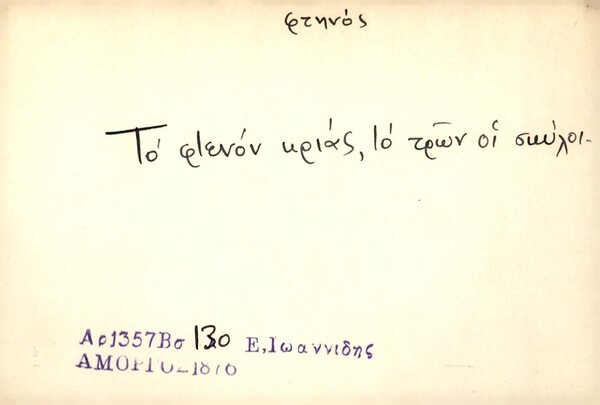 φτηνός
Τό φτενόν κριάς, τό τρῶν οἱ σκύλοι.
Αρ1357Βσ 130 Ε,Ιωαννιδης
ΑΜΟΡΓΟΣ1876